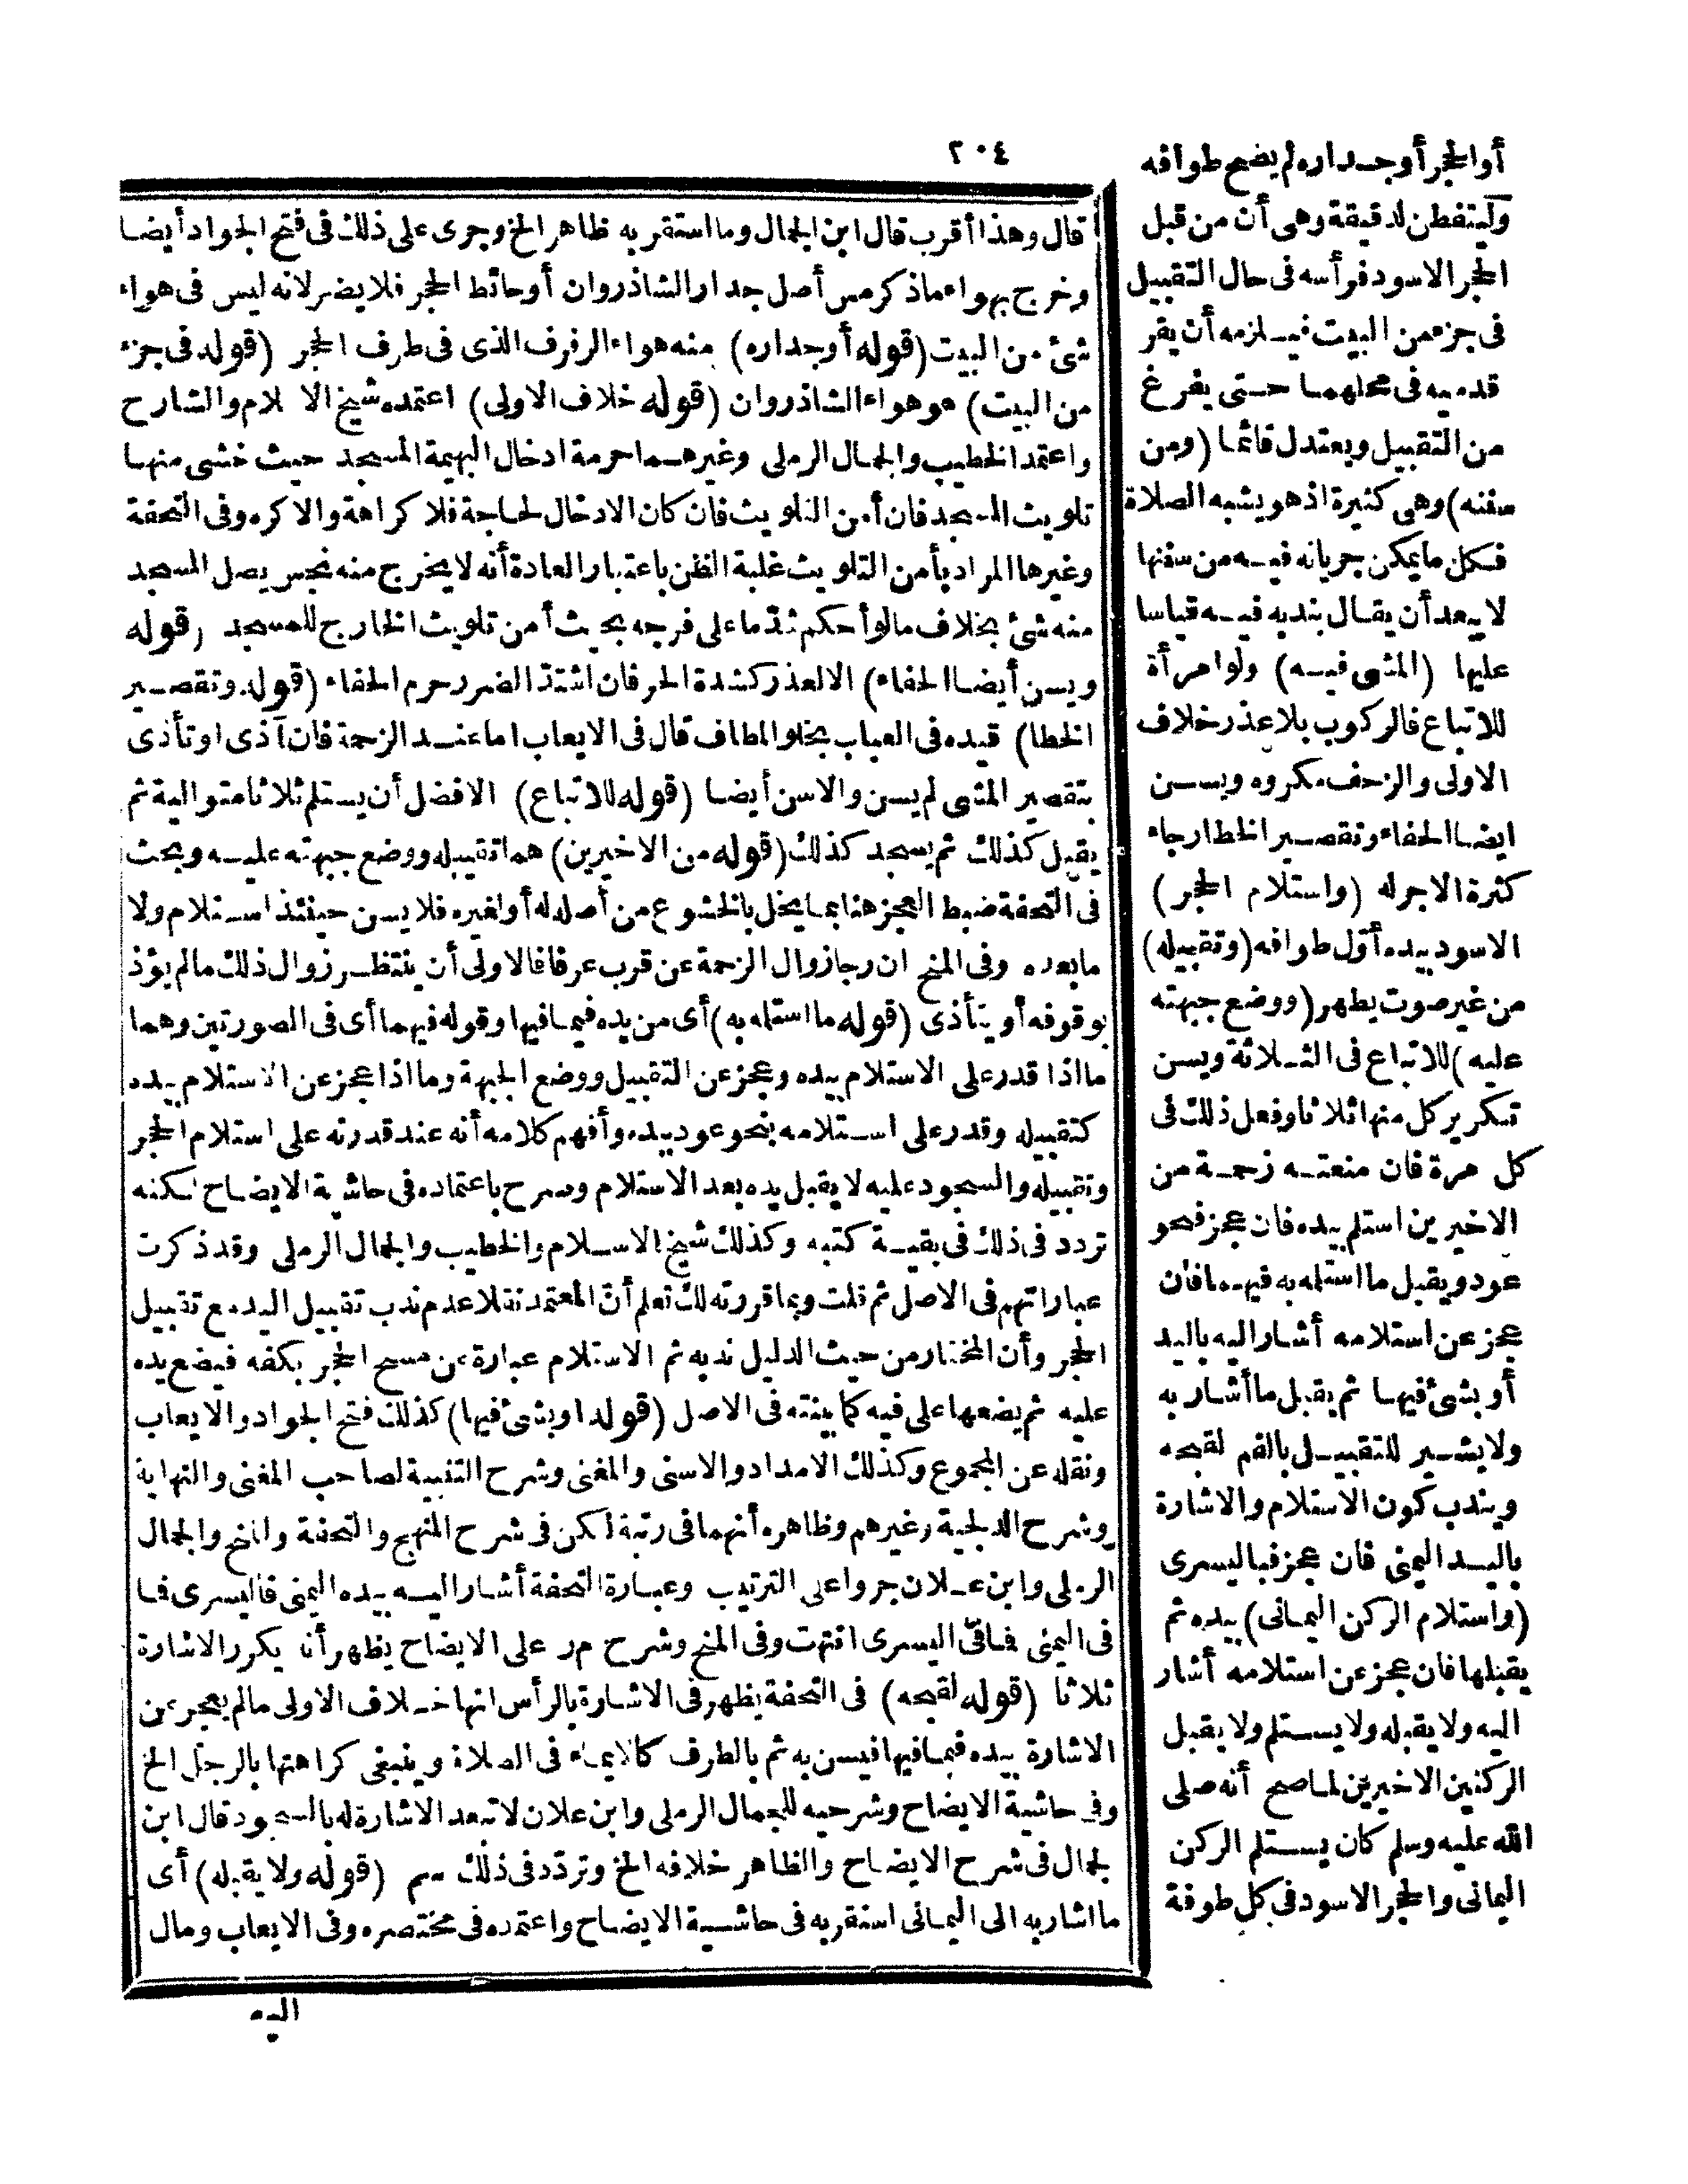 ٢٠٤
أو الحجر أو جداره لم يضح طوافه
وليتفطن لدقيقة وهى أن من قبل
الحجر الاسود فرأسه فى حال التقبيل
فى جزء من البيت فيلزمه أن يقر
قدميه فى محلهما حتى يفرغ
من التقبيل ويعتدل قائما (ومن
سننه) وهى كثيرة اذ هو يشبه الصلاة
فكل ما يمكن جريانه فيه من سننها
لا يبعد أن يقال بندبه فيه قياسا
عليها (المشى فيه) ولو امرأة
للاتباع فالركوب بلا عذر خلاف
الاولى والزحف مكروه ويسن
ايضا الحفاء وتقصير الخطا رجاء
كثرة الاجر له (واستلام الحجر)
الاسود بيده أوّل طوافه (وتقبيله)
من غير صوت يظهر (ووضع جبهته
عليه) للاتباع فى الثلاثة ويسن
تكرير كل منها ثلاثا وفعل ذلك فى
كل مرة فان منعته زحمة من
الاخيرين استلم بيده فان عجز فنحو
عود ويقبل ما استلمه به فيهما فان
عجز عن استلامه أشار اليه باليد
أو بشئ فيها ثم يقبل ما أشار به
ولا يشير للتقبيل بالفم لقبحه
ويندب كون الاستلام والاشارة
باليد اليمنى فان عجز فباليسرى
(واستلام الركن اليمانى) بيده ثم
يقبلها فان عجز عن استلامه أشار
اليه ولا يقبله ولا يستلم ولا يقبل
الركنين الاخيرين لما صح أنه صلى
الله عليه وسلم كان يستلم الركن
اليمانى والحجر الاسود فى كل طوفة
قال وهذا أقرب قال ابن الجمال وما استقر به ظاهر الخ وجرى على ذلك فى فتح الجواد أيضا
وخرج بهواء ما ذكر مس أصل جدار الشاذروان أو حائط الحجر فلا يضر لانه ليس فى هواء
شئ من البيت (قوله أو جداره) منه هواء الرفرف الذى فى طرف الحجر (قوله فى جزء
من البيت) هو هواء الشاذروان (قوله خلاف الاولى) اعتمده شيخ الاسلام والشارح
واعتمد الخطيب والجمال الرملى وغيرهما حرمة ادخال البهيمة المسجد حيث خشى منها
تلويث المسجد فان أمن التلويث فان كان الادخال لحاجة فلا كراهة والا كره وفى التحفة
وغيرها المراد بأمن التلويث غلبة الظن باعتبار العادة أنه لا يخرج منه نجس يصل المسجد
منه شئ بخلاف ما لو أحكم شدّ ما على فرجه بحيث أمن تلويث الخارج للمسجد (قوله
ويسن أيضا الحفاء) الا لعذر كشدة الحر فان اشتدّ الضرر حرم الحفاء (قوله وتقصير
الخطا) قيده فى العباب بخلو المطاف قال فى الايعاب اما عند الزحمة فان آذى او تأذى
بتقصير المشى لم يسن والا سن أيضا (قوله للاتباع) الافضل أن يستلم ثلاثا متوالية ثم
يقبل كذلك ثم يسجد كذلك (قوله من الاخيرين) هما تقبيله ووضع جبهته عليه وبحث
فى التحفة ضبط العجز هنا بما يخل بالخشوع من أصله له أو لغيره فلا يسن حينئذ استلام ولا
ما بعده وفى المنح ان رجا زوال الزحمة عن قرب عرفا فالاولى أن ينتظر زوال ذلك ما لم يؤذ
بوقوفه أو يتأذى (قوله ما استلمه به) أى من يده فيما فيها وقوله فيهما أى فى الصورتين وهما
ما اذا قدر على الاستلام بيده وعجز عن التقبيل ووضع الجبهة وما اذا عجز عن الاستلام بيده
كتقبيله وقدر على استلامه بنحو عود بيده وأفهم كلامه أنه عند قدرته على استلام الحجر
وتقبيله والسجود عليه لا يقبل يده بعد الاستلام وصرح باعتماده فى حاشية الايضاح لكنه
تردد فى ذلك فى بقية كتبه وكذلك شيخ الاسلام والخطيب والجمال الرملى وقد ذكرت
عباراتهم فى الاصل ثم قلت وبما قررته لك تعلم أنّ المعتمد نقلا عدم ندب تقبيل اليد مع تقبيل
الحجر وأن المختار من حيث الدليل ندبه ثم الاستلام عبارة عن مسح الحجر بكفه فيضع يده
عليه ثم يضعها على فيه كما بينته فى الاصل (قوله او بشئ فيها) كذلك فتح الجواد والايعاب
ونقله عن المجموع وكذلك الامداد والاسنى والمغنى وشرح التنبيه لصاحب المغنى والنهاية
وشرح الدلجية وغيرهم وظاهره أنهما فى رتبة لكن فى شرح المنهج والتحفة والمنح والجمال
الرملى وابن علان جروا على الترتيب وعبارة التحفة أشار اليه بيده اليمنى فاليسرى فما
فى اليمنى فما فى اليسرى انتهت وفى المنح وشرح مر على الايضاح يظهر أنه يكرر الاشارة
ثلاثا (قوله لقبحه) فى التحفة يظهر فى الاشارة بالرأس انها خلاف الاولى ما لم يعجز عن
الاشارة بيده فيما فيها فيسن به ثم بالطرف كالايماء فى الصلاة وينبغى كراهتها بالرجل الخ
وفى حاشية الايضاح وشرحيه للجمال الرملى وابن علان لا تبعد الاشارة له بالسجود قال ابن
لجمال فى شرح الايضاح والظاهر خلافه الخ وتردّد فى ذلك سم (قوله ولا يقبله) أى
ما اشار به الى اليمانى استقر به فى حاشية الايضاح واعتمده فى مختصره وفى الايعاب ومال
اليه